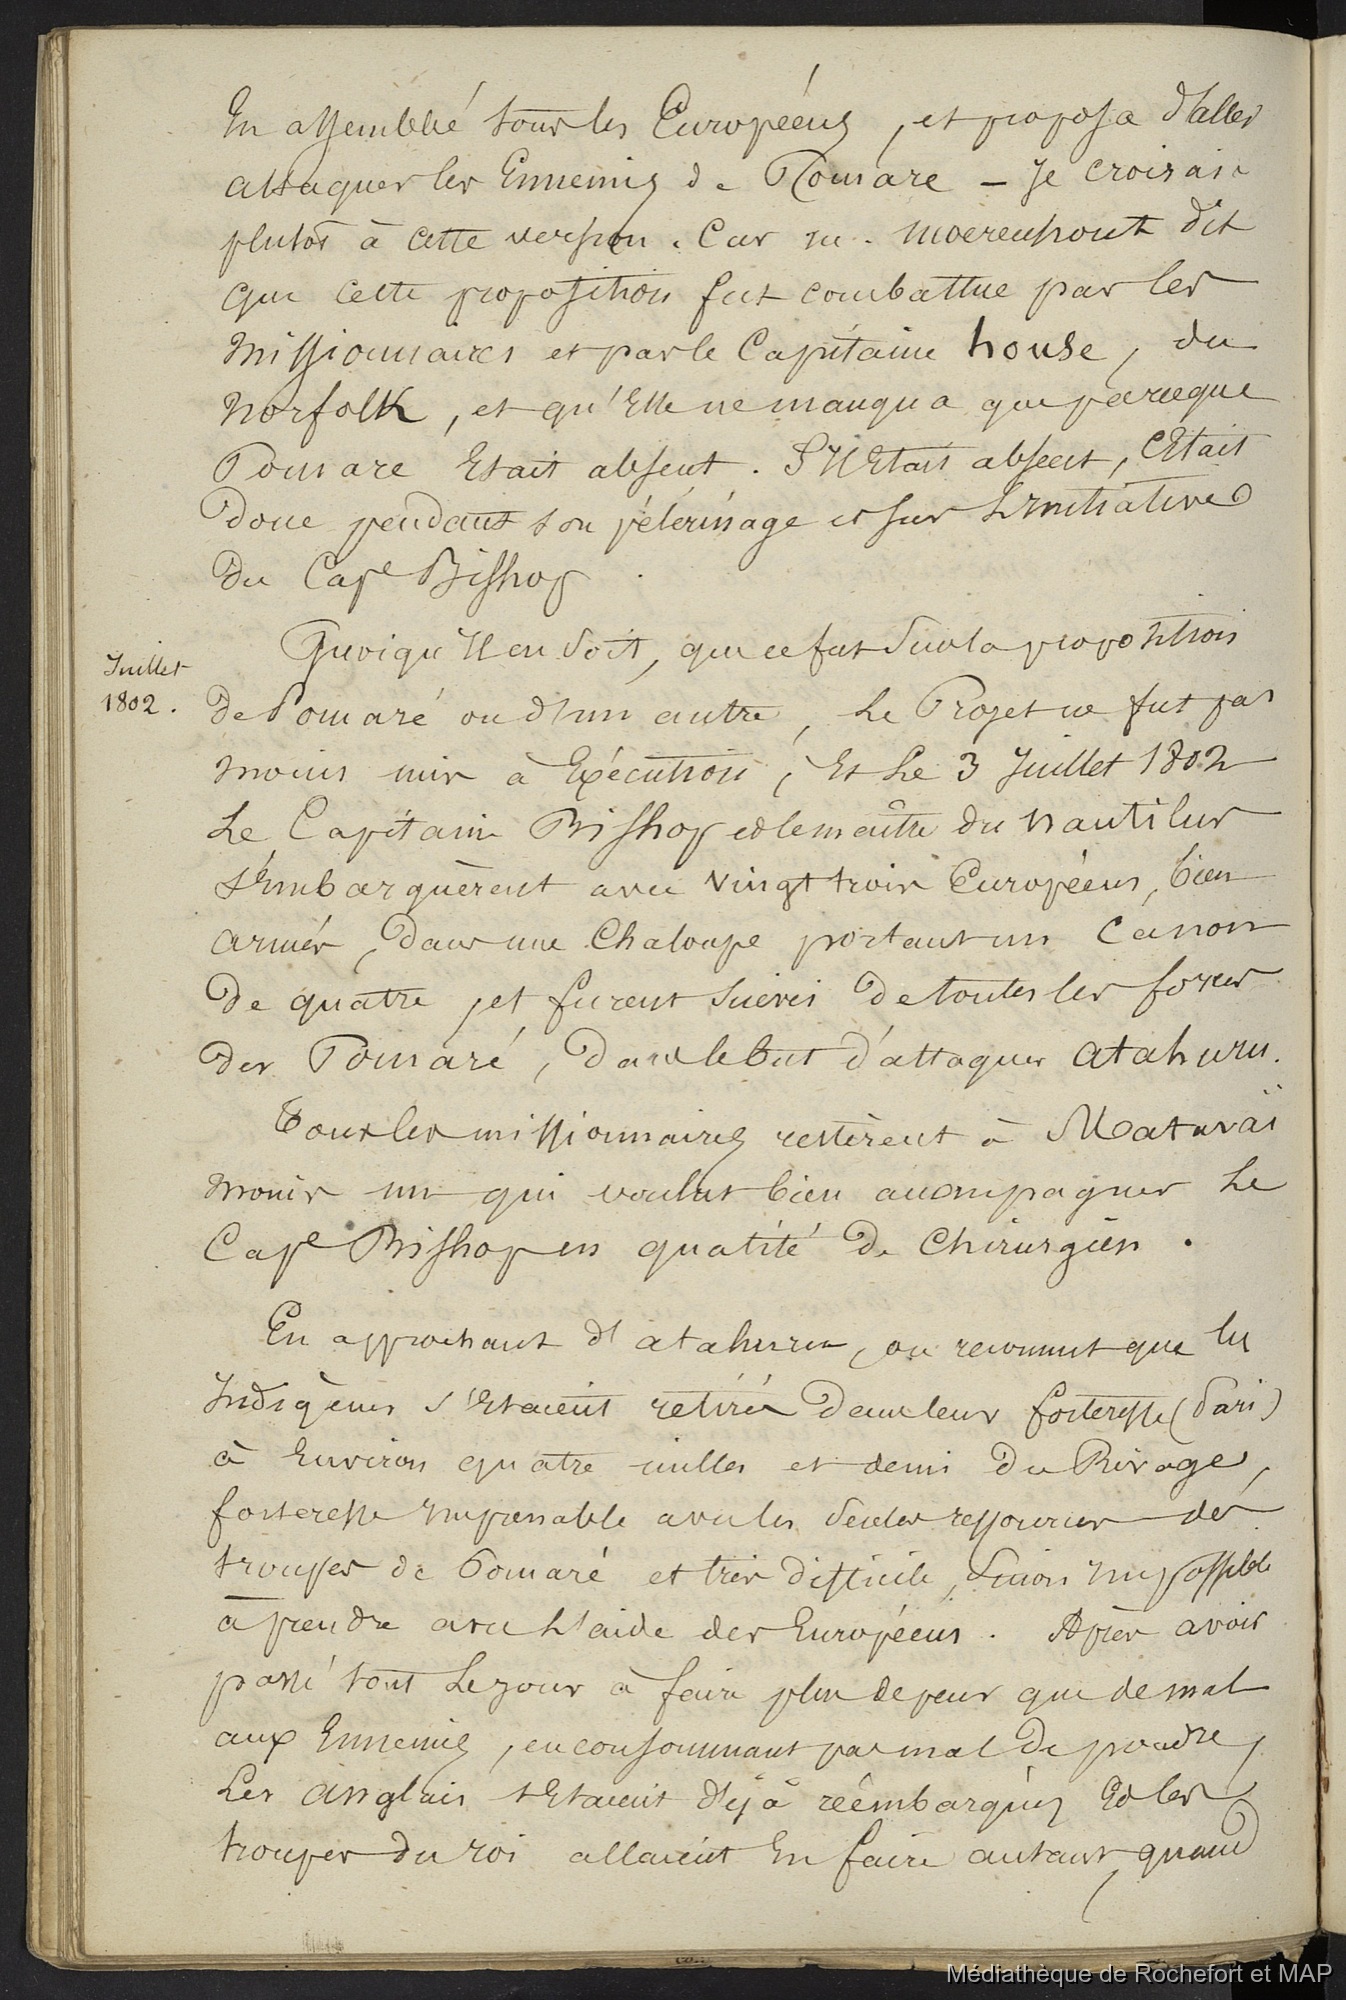 En assemblée tous les Européens, et proposa d'aller
attaquer les Ennemis de Pomare – Je croirais
plutôt à cette version. Car m. moerenhout dit
que cette proposition fut combattue par les
missionnaires et par le Capitaine house, du
Norfolk, et qu'Elle ne manqua que parceque
Pomare Etait absent. S'Il Etait absent, C'Etait
donc pendant son pélerinage et sur L'Initiative
du Cape Bishop
Juillet
1802.
Quoiqu'Il en Soit, que ce fut Sur la proposition
de Pomaré ou d'un autre, Le Projet ne fut pas
moins mis à Exécution, Et Le 3 Juillet 1802
Le Capitaine Bishop et le maître du nautilus
s'Embarquèrent avec vingt trois Européens, bien
armés, dans une Chaloupe portant un Canon
de quatre, et furent Suivis de toutes les forces
des Pomaré, dans le but d'attaquer atahuru.
Tous les missionnaires restèrent à Matavaï
moins un qui voulut bien accompagner Le
Cape Bishop en qualité de Chirurgien.
En approchant d'atahuru, on reconnut que les
Indigènes s'Etaient retirés dans leur forteresse (Pari)
à Environ quatre milles et demi du Rivage,
forteresse Imprenable avec les Seules ressources des
troupes de Pomaré et très difficile, Sinon Impossible
à prendre avec L'aide des Européens. Après avoir
passé tout Le jour à faire plus de peur que de mal
aux Ennemis, en consommant pas mal de poudre,
Les anglais s'Etaient déjà réembarqués Et les
troupes du roi allaient En faire autant, quand
Médiathèque de Rochefort et MAP